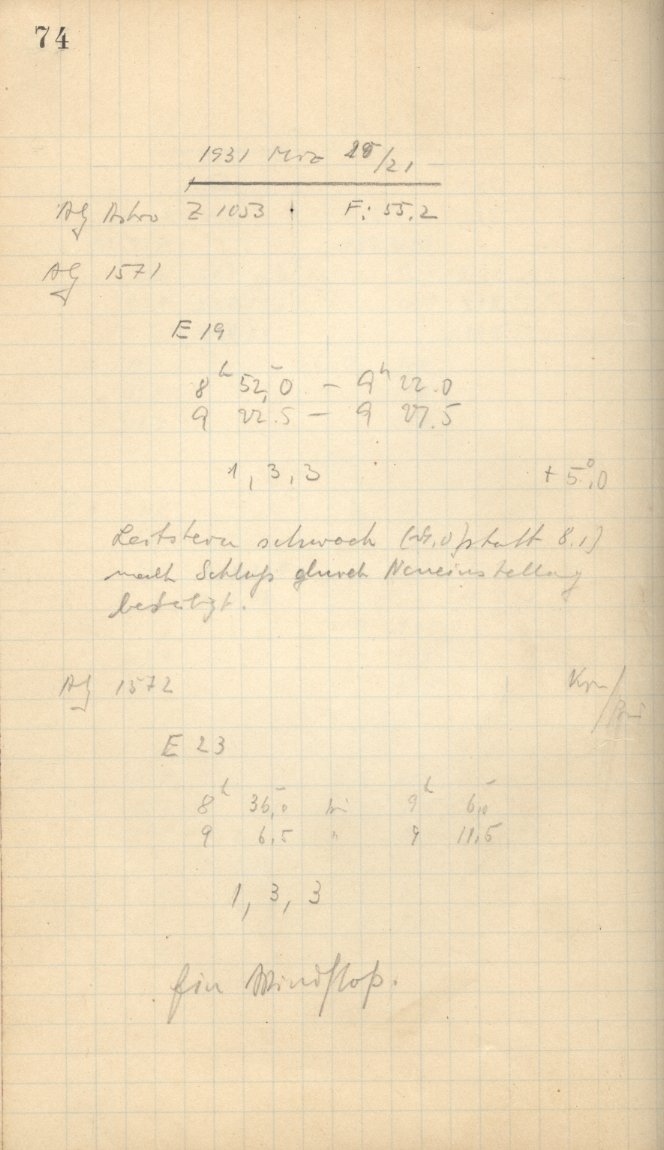 74
1931 Mrz /21
AG Astro Z 1053 F: 55.2
AG 1571
E 19
8h 52,0 – 9h 22.0
9 22.5 – 9 27.5
1, 3, 3 +5°,0
Leitstern schwach statt 8.1)
nach Schluß durch Neueinstellung
AG 1572
E 23
8h 36,0 bis 9h 6,0
9 6,5 " 9 11,5
1, 3, 3
Ein Windstoß.